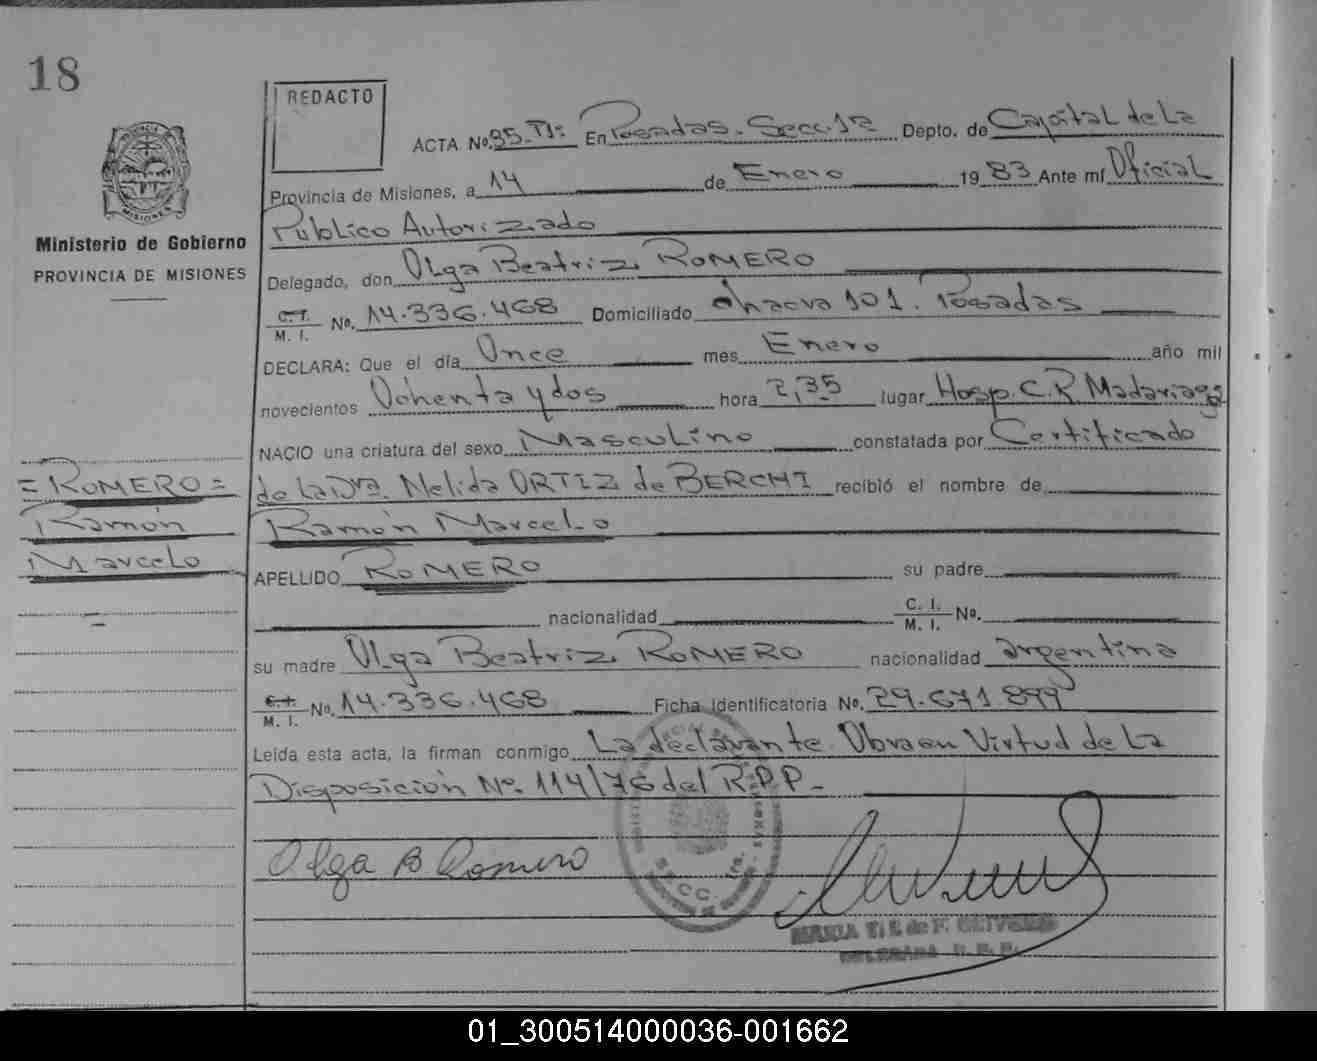 18
REDACTO
ACTA No. 95. TI: En Posadas. Secc. 1ra Depto. de Capital de La
Provincia de Misiones, a 14 de Enero 1983 Ante mí Oficial
Público Autorizado
Ministerio de Gobierno
PROVINCIA DE MISIONES
Delegado, don Olga Beatriz ROMERO
C. I. M. I. No. 14.336.468 Domiciliado 101. Posadas
DECLARA: Que el día Once mes Enero año mil
novecientos Ochenta y dos hora 2,35 lugar Hosp. C. R. Madariaga
NACIO una criatura del sexo Masculino constatada por Certificado
= ROMERO =
de La Dra. Nelida ORTIZ de BERCHI recibió el nombre de
Ramón
Ramón Marcelo
Marcelo
APELLIDO ROMERO su padre
nacionalidad C. I. M. I. No.
su madre Olga Beatriz ROMERO nacionalidad argentina
C. I. M. I. No. 14.336.468 Ficha Identificatoria No. 29.671.899
Leída esta acta, la firman conmigo La declarante. Obra en Virtud de La
Disposición No. 114/76 del R.P.P.-
Olga B Romero
SECC. 1ra.
MARIA
01_300514000036-001662